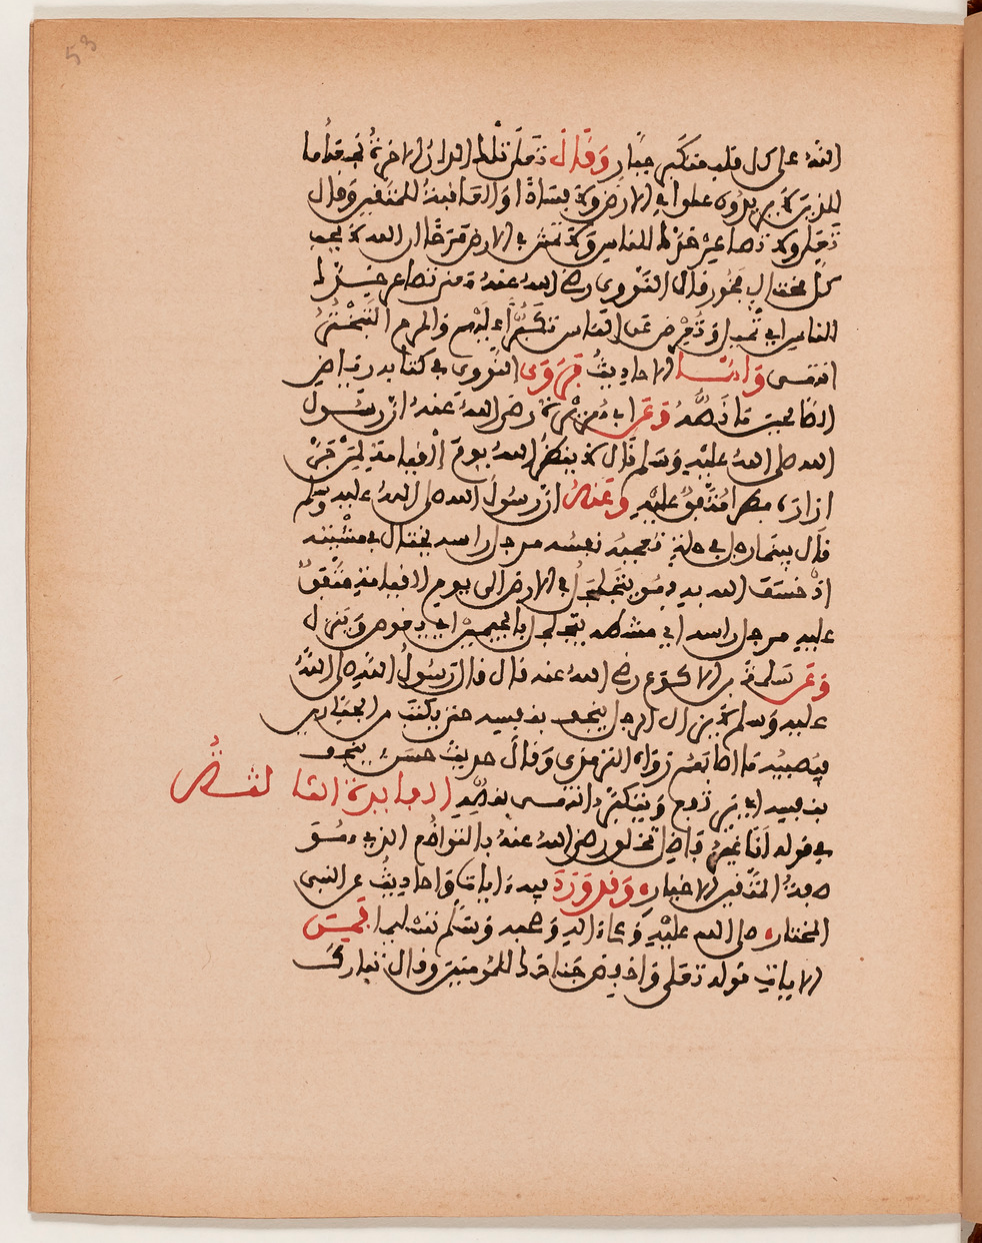 53
الله على كل قلب متكبر جبار وقال تعلى تلك الدار الاخرة نجعلها
للذين لا يريدون علوا في الارض ولا فسادا والعاقبة للمتقين وقال
تعلى ولا تصاعر خدك للناس ولا تمش في الارض مرحا ان الله لا يحب
كل مختال فخور قال النووي رضي الله عنه ومن تصاعر خدك
للناس اي تميل وتعرض عن الناس تكبرا عليهم والمرح التبختر
انتهى واما الاحاديث فروى النووي في كتابه رياض
الصالحين ما نصه وعن ابي هريرة رضي الله عنه ان رسول
الله صلى الله عليه وسلم قال لا ينظر الله يوم القيامة لمن جر
ازاره بطرا متفق عليه وعنه ان رسول الله صلى الله عليه وسلم
قال بينما رجل في حلة تعجبه نفسه مرجل راسه يختال في مشيته
اذ خسف الله به فهو يتجلجل في الارض الى يوم القيامة متفق
عليه مرجل راسه اي مشطه يتجلجل بالجيمين اي يغوص وينزل
وعن سلمة بن الاكوع رضي الله عنه قال قال رسول الله صلى الله
عليه وسلم لا يزال الرجل يذهب بنفسه حتى يكتب من الجبارين
فيصيبه ما اصابهم رواه الترمذي وقال حديث حسن يذهب
بنفسه اي يرتفع ويتكبر انتهى بنصه الفايدة الثالثة
في قوله انا غير فاضل تخلق رضي الله عنه بالتواضع الذي هو
صفة المتقين الاخيار وقد ورد فيه ايات واحاديث عن النبي
المختار صلى الله عليه وعلى اله وصحبه وسلم تسليما فمن
الايات قوله تعلى واخفض جناحك للمومنين وقال تبارك